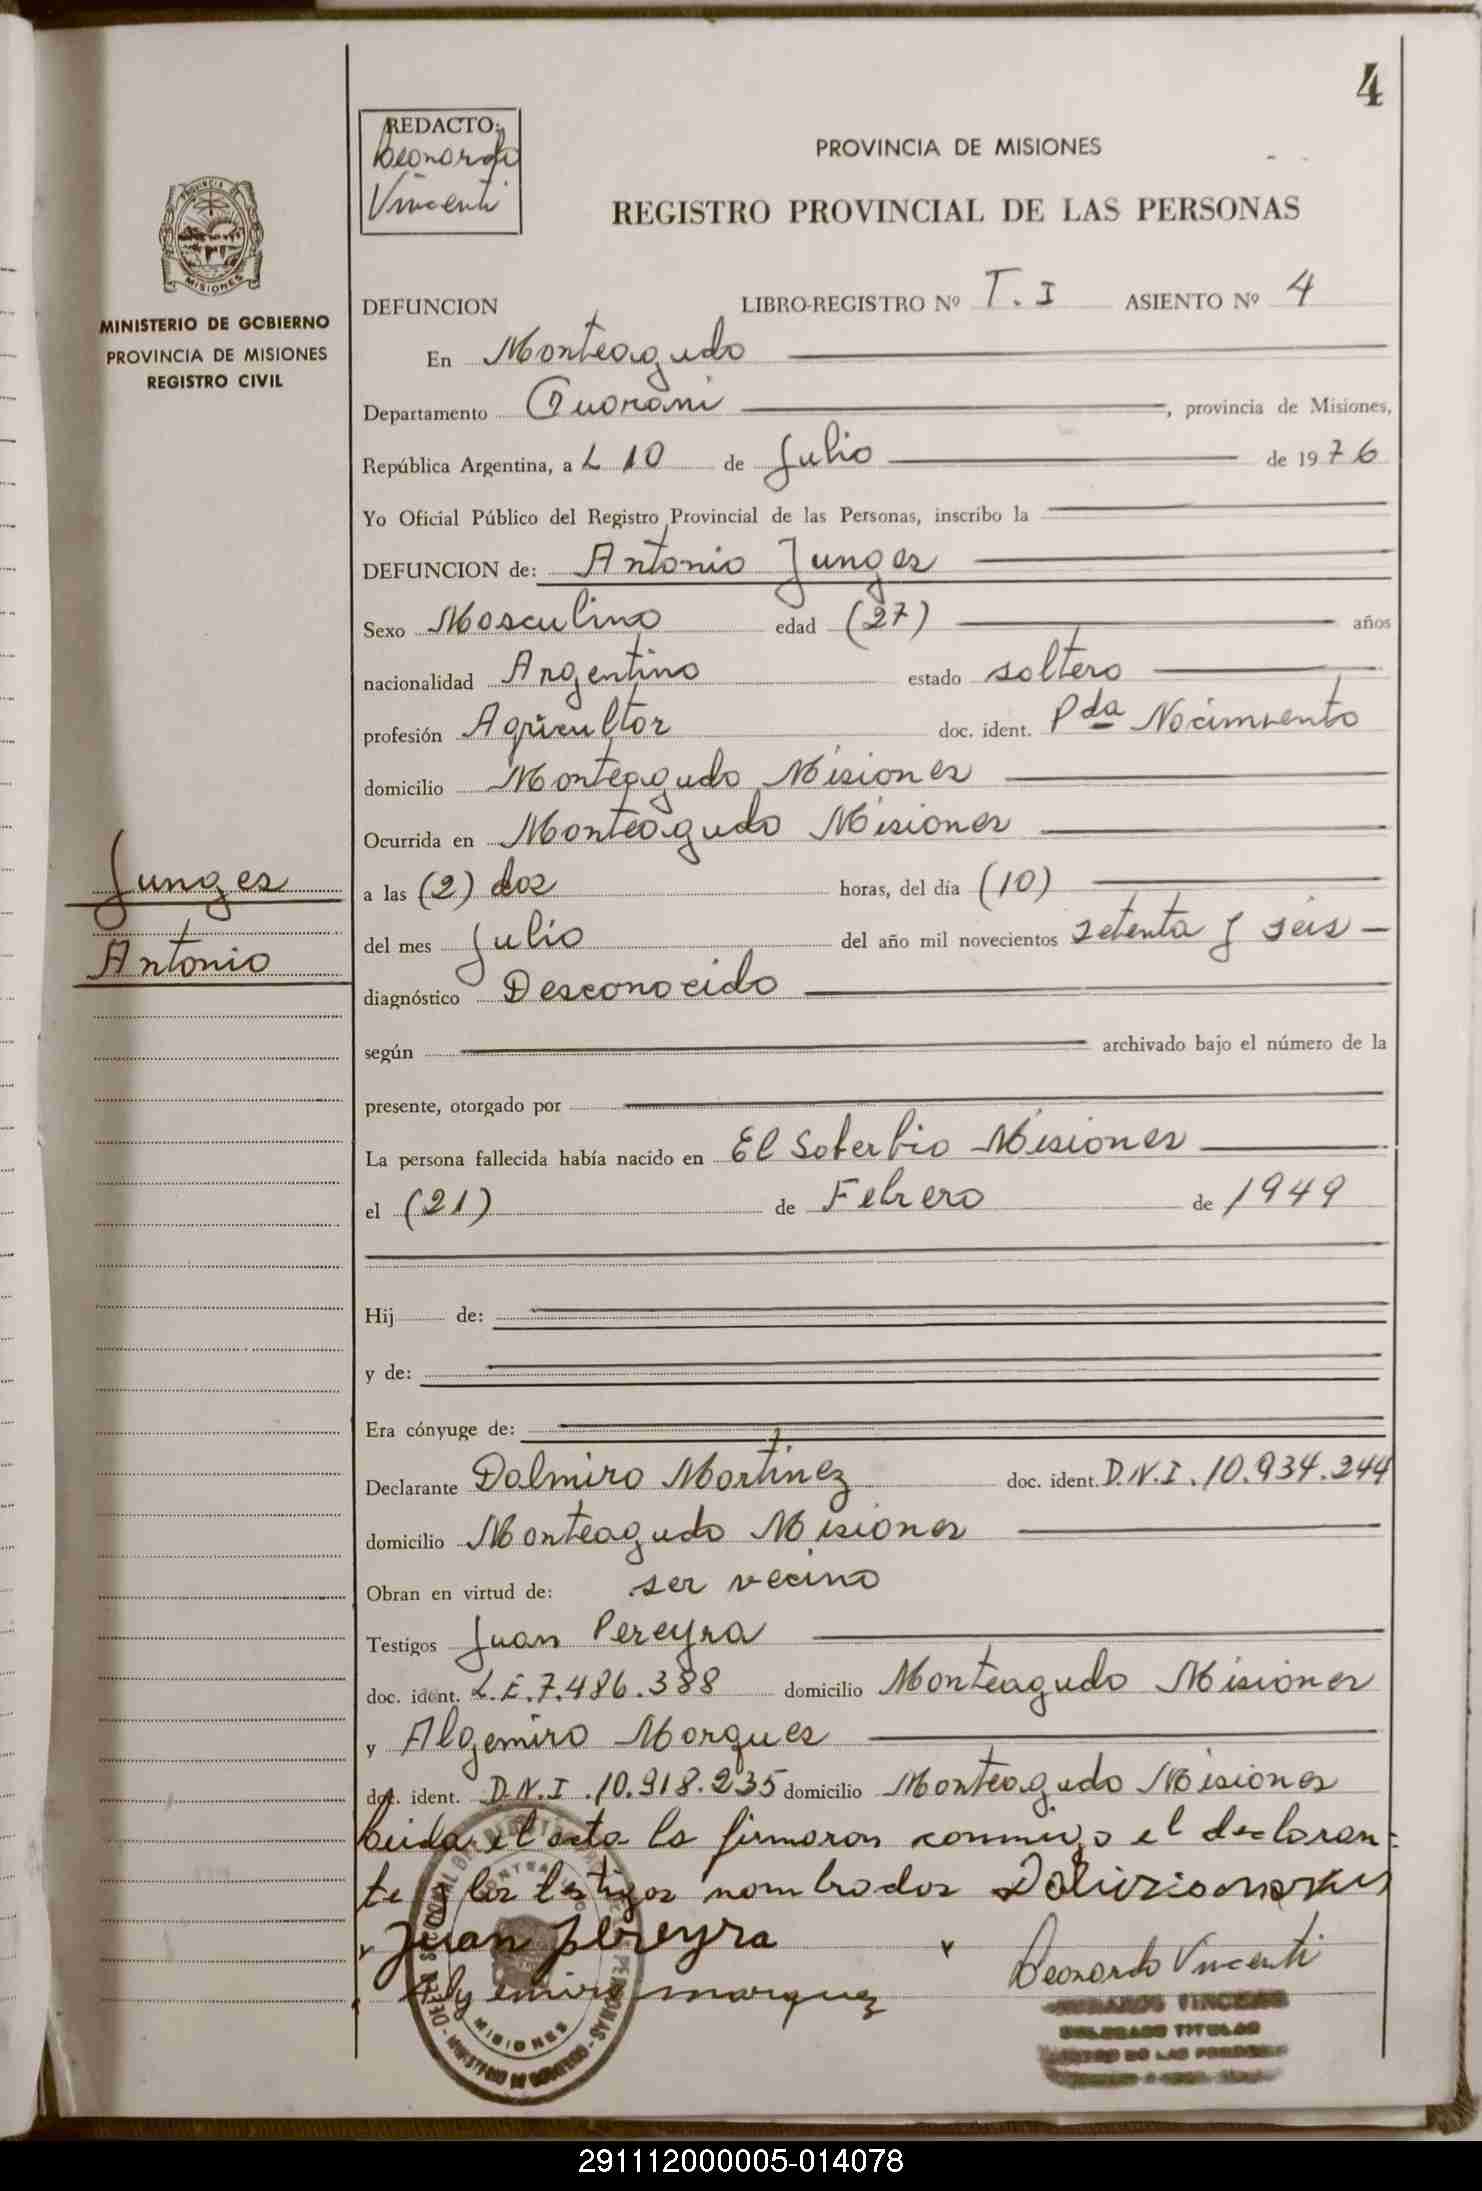 4
REDACTO:
Leonardo
Vincenti
PROVINCIA DE MISIONES
REGISTRO PROVINCIAL DE LAS PERSONAS
MINISTERIO DE GOBIERNO
PROVINCIA DE MISIONES
REGISTRO CIVIL
DEFUNCION LIBRO-REGISTRO Nº T. I ASIENTO Nº 4
En Monteagudo
Departamento Guarani, provincia de Misiones,
República Argentina, a L 10 de Julio de 1976
Yo Oficial Público del Registro Provincial de las Personas, inscribo la
DEFUNCION de: Antonio Junges
Sexo Masculino edad (27) años
nacionalidad Argentino estado soltero
profesión Agricultor doc. ident. Pda Nacimiento
domicilio Monteagudo Misiones
Ocurrida en Monteagudo Misiones
Junges
Antonio
a las (2) dos horas, del día (10)
del mes Julio del año mil novecientos setenta y seis
diagnóstico Desconocido
según archivado bajo el número de la
presente, otorgado por
La persona fallecida había nacido en El Soberbio Misiones
el (21) de Febrero de 1949
Hij de:
y de:
Era cónyuge de:
Declarante Dalmiro Martinez doc. ident. D.N.I. 10.934.244
domicilio Monteagudo Misiones
Obran en virtud de: ser vecino
Testigos Juan Pereyra
doc. ident. L.E. 7.486.388 domicilio Monteagudo Misiones
y Algemiro Marques
doc. ident. D.N.I. 10.918.235 domicilio Monteagudo Misiones
Leida el acta la firmaron conmigo el declaran=
te y los testigos nombrados
Juan Pereyra
marquez
Leonardo Vincenti
DELEGADO TITULAR
MISIONES
291112000005-014078